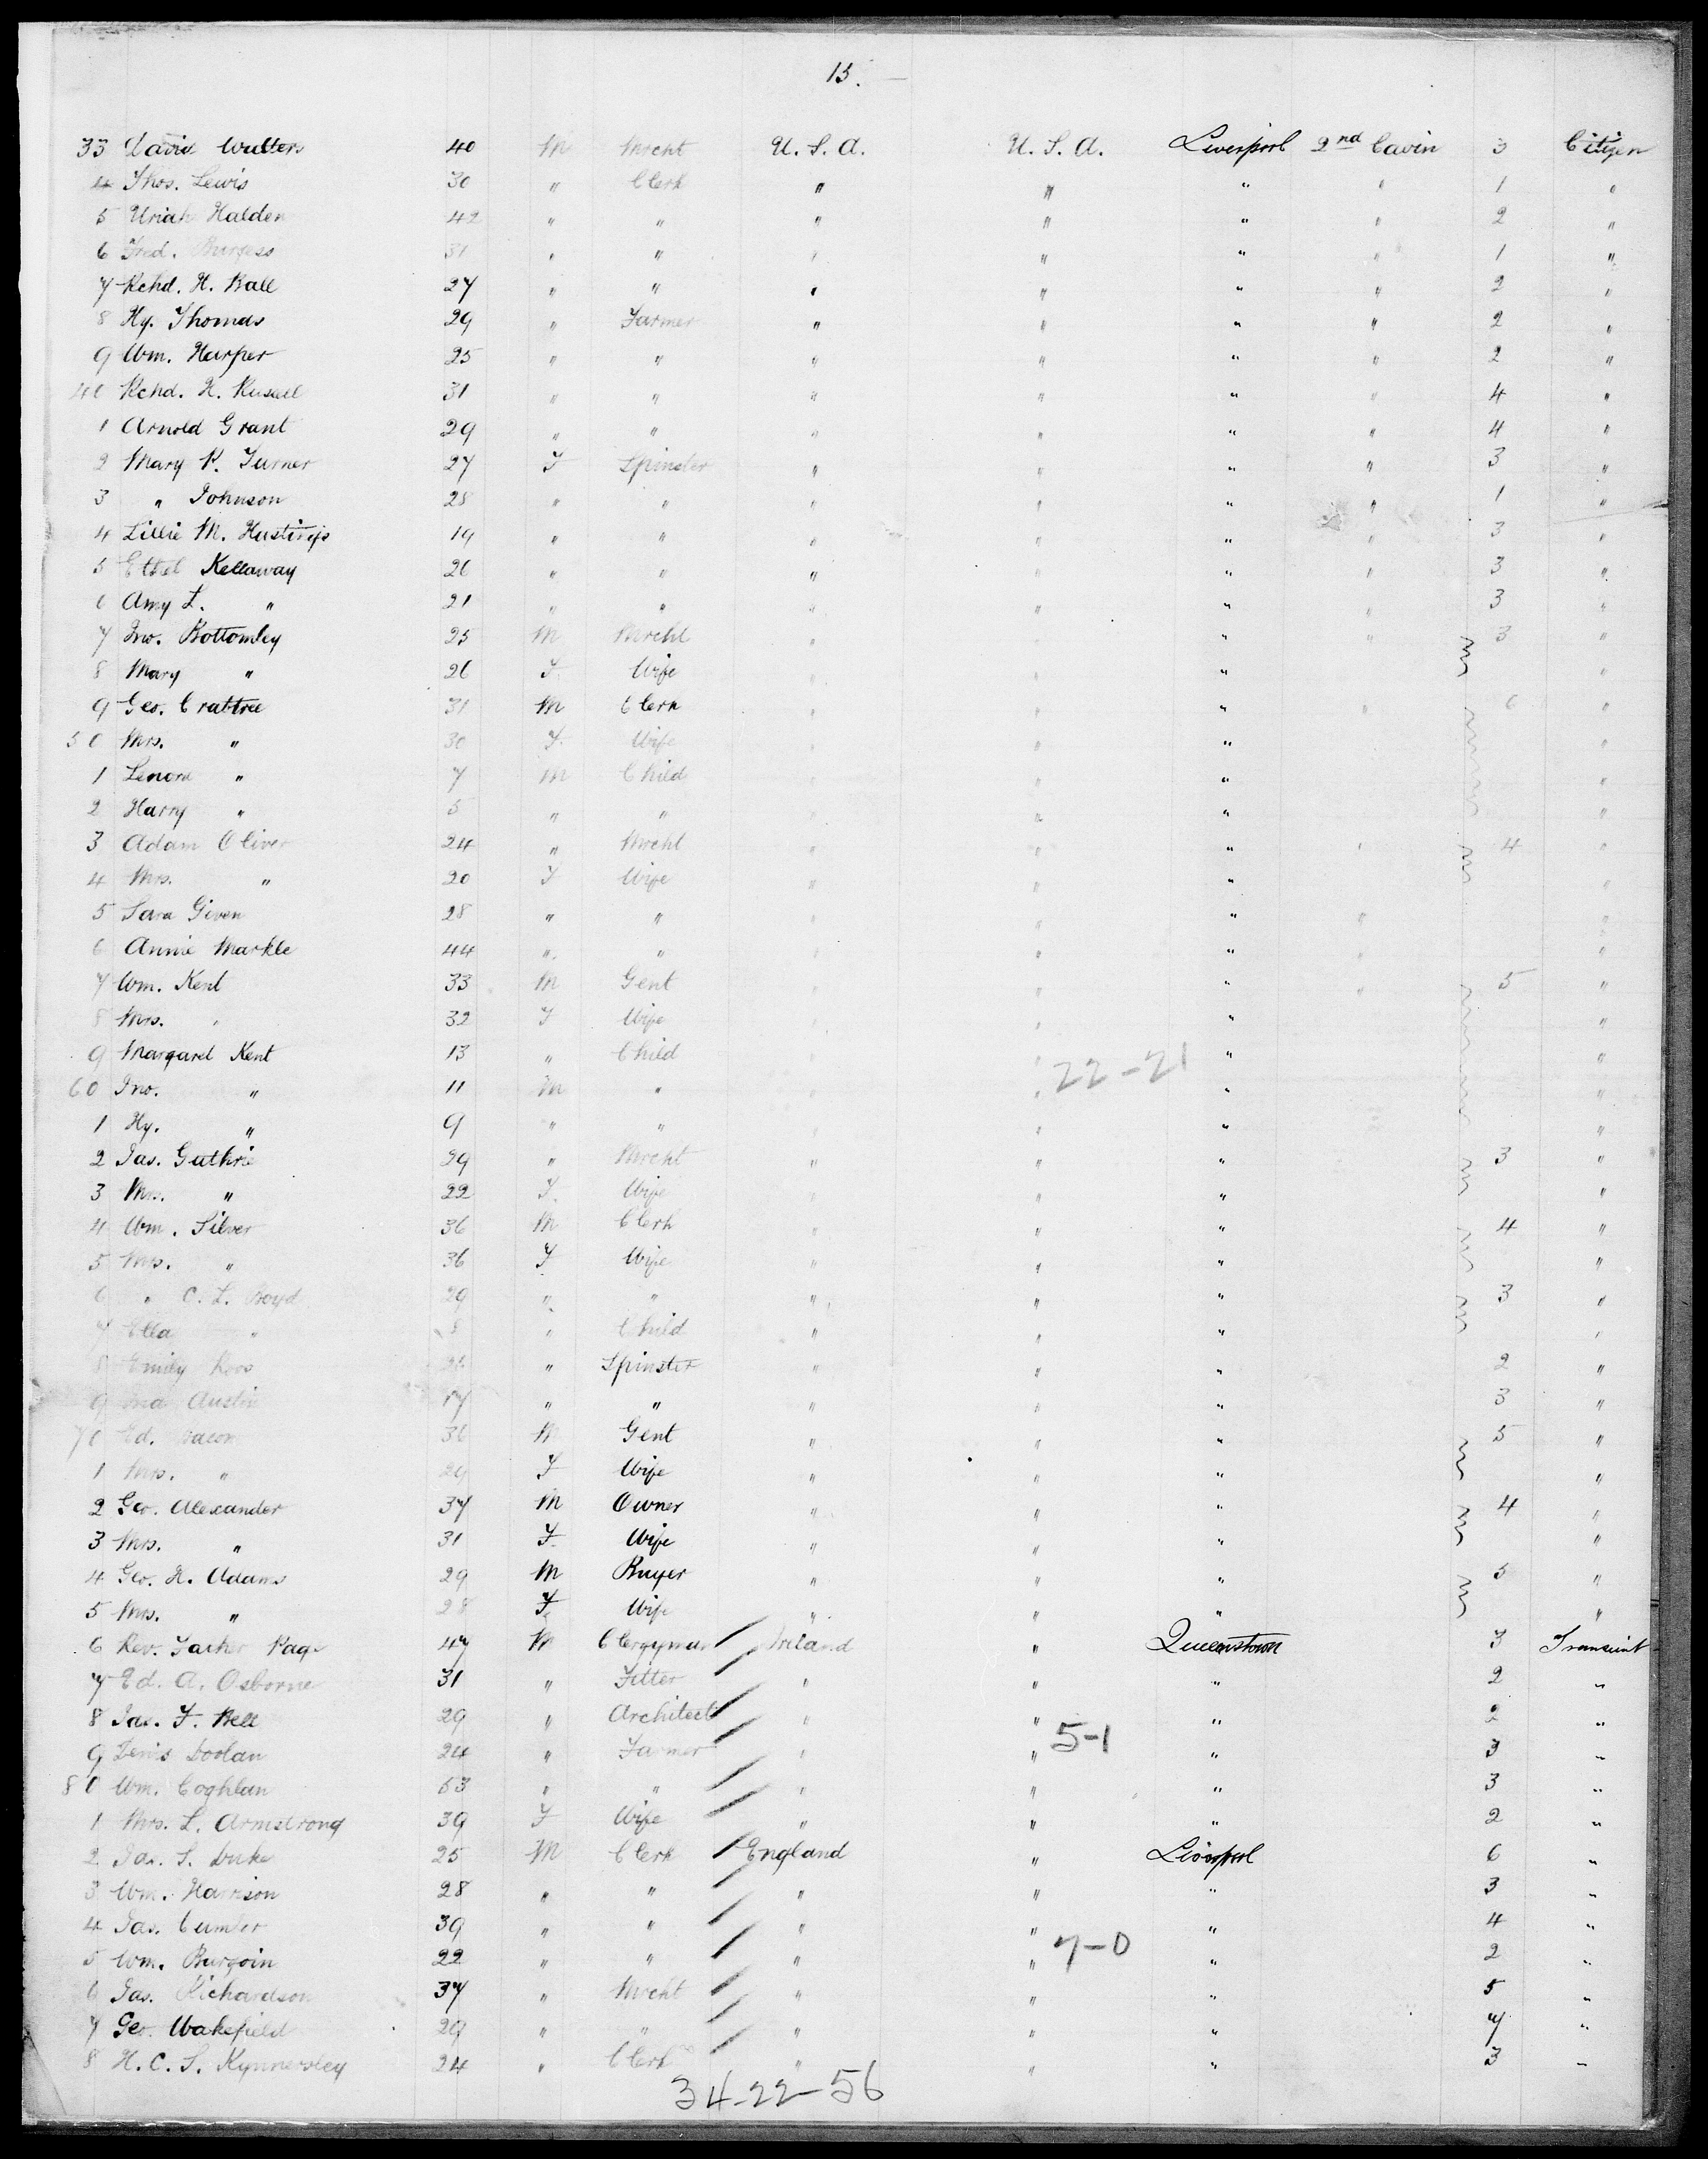 13.
33 David Walters 40 M Mrcht U.S.A. U.S.A. Liverpool 2nd Cabin 3 Citizen
4 Thos. Lewis 30 " Clerk " " " " 1 "
5 Uriah Halden 42 " " " " " " 2 "
6 Fred. Burgess 31 " " " " " " 1 "
7 Rchd. H. Ball 27 " " " " " " 2 "
8 Hy. Thomas 29 " Farmer " " " " 2 "
9 Wm. Harper 25 " " " " " " 2 "
40 Rchd. H. Russell 31 " " " " " " 4 "
1 Arnold Grant 29 " " " " " " 4 "
2 Mary K. Turner 27 F Spinster " " " " 3 "
3 " Johnson 28 " " " " " " 1 "
4 Lillie M. Hastings 19 " " " " " " 3 "
5 Ethel Kellaway 26 " " " " " " 3 "
6 Amy L. " 21 " " " " " " 3 "
7 Jno. Bottomley 25 M Mrcht " " " " 3 "
8 Mary " 26 F Wife " " " "
9 Geo. Crabtree 31 M Clerk " " " " 6 "
50 Mrs. " 30 F Wife " " " "
1 Lenora " 7 M Child " " " "
2 Harry " 5 " " " " " "
3 Adam Oliver 24 " Mrcht " " " " 4 "
4 Mrs. " 20 F Wife " " " "
5 Sara Given 28 " " " " " " "
6 Annie Markle 44 " " " " " " "
7 Wm. Kent 33 M Gent " " " " 5 "
8 Mrs. " 32 F Wife " " " "
9 Margaret Kent 13 " Child " " " "
22-21
60 Jno. " 11 M " " " " "
1 Hy. " 9 " " " " " "
2 Jas. Guthrie 29 " Mrcht " " " 3 "
3 Mrs. " 22 F Wife " " " "
4 Wm. Silver 36 M Clerk " " " 4 "
5 Mrs. " 36 F Wife " " " "
6 " C. L. Boyd 29 " " " " " 3 "
7 Ella " 8 " Child " " " "
8 Emily Ross " Spinster " " " 2 "
9 Austin 17 " " " " " 3 "
70 Ed. Bacon 36 M Gent " " " 5 "
1 Mrs. " 29 F Wife " " " "
2 Geo. Alexander 37 M Owner " " " 4 "
3 Mrs. " 31 F Wife " " " "
4 Geo. H. Adams 29 M Buyer " " " 5 "
5 Mrs. " 28 F Wife " " " "
6 Rev. Father Page 47 M Clergyman Ireland " Queenstown 3 Transient
7 Ed. A. Osborne 31 " Fitter " " " 2 "
8 Jas. F. Bell 29 " Architect " " " 2 "
5-1
9 Denis Doolan 24 " Farmer " " " 3 "
80 Wm. Coghlan 53 " " " " " 3 "
1 Mrs. L. Armstrong 39 F Wife " " " 2 "
2 Jas. S. Duke 25 M Clerk England " Liverpool 6 "
3 Wm. Harrison 28 " " " " " 3 "
4 Jas. Cumler 39 " " " " " 4 "
7-0
5 Wm. Burgoin 22 " " " " " 2 "
6 Jas. Richardson 37 " Mrcht " " " 5 "
7 Geo. Wakefield 29 " " " " " 7 "
8 H. C. S. Kynnersley 24 " Clerk " " " 3 "
34-22-56